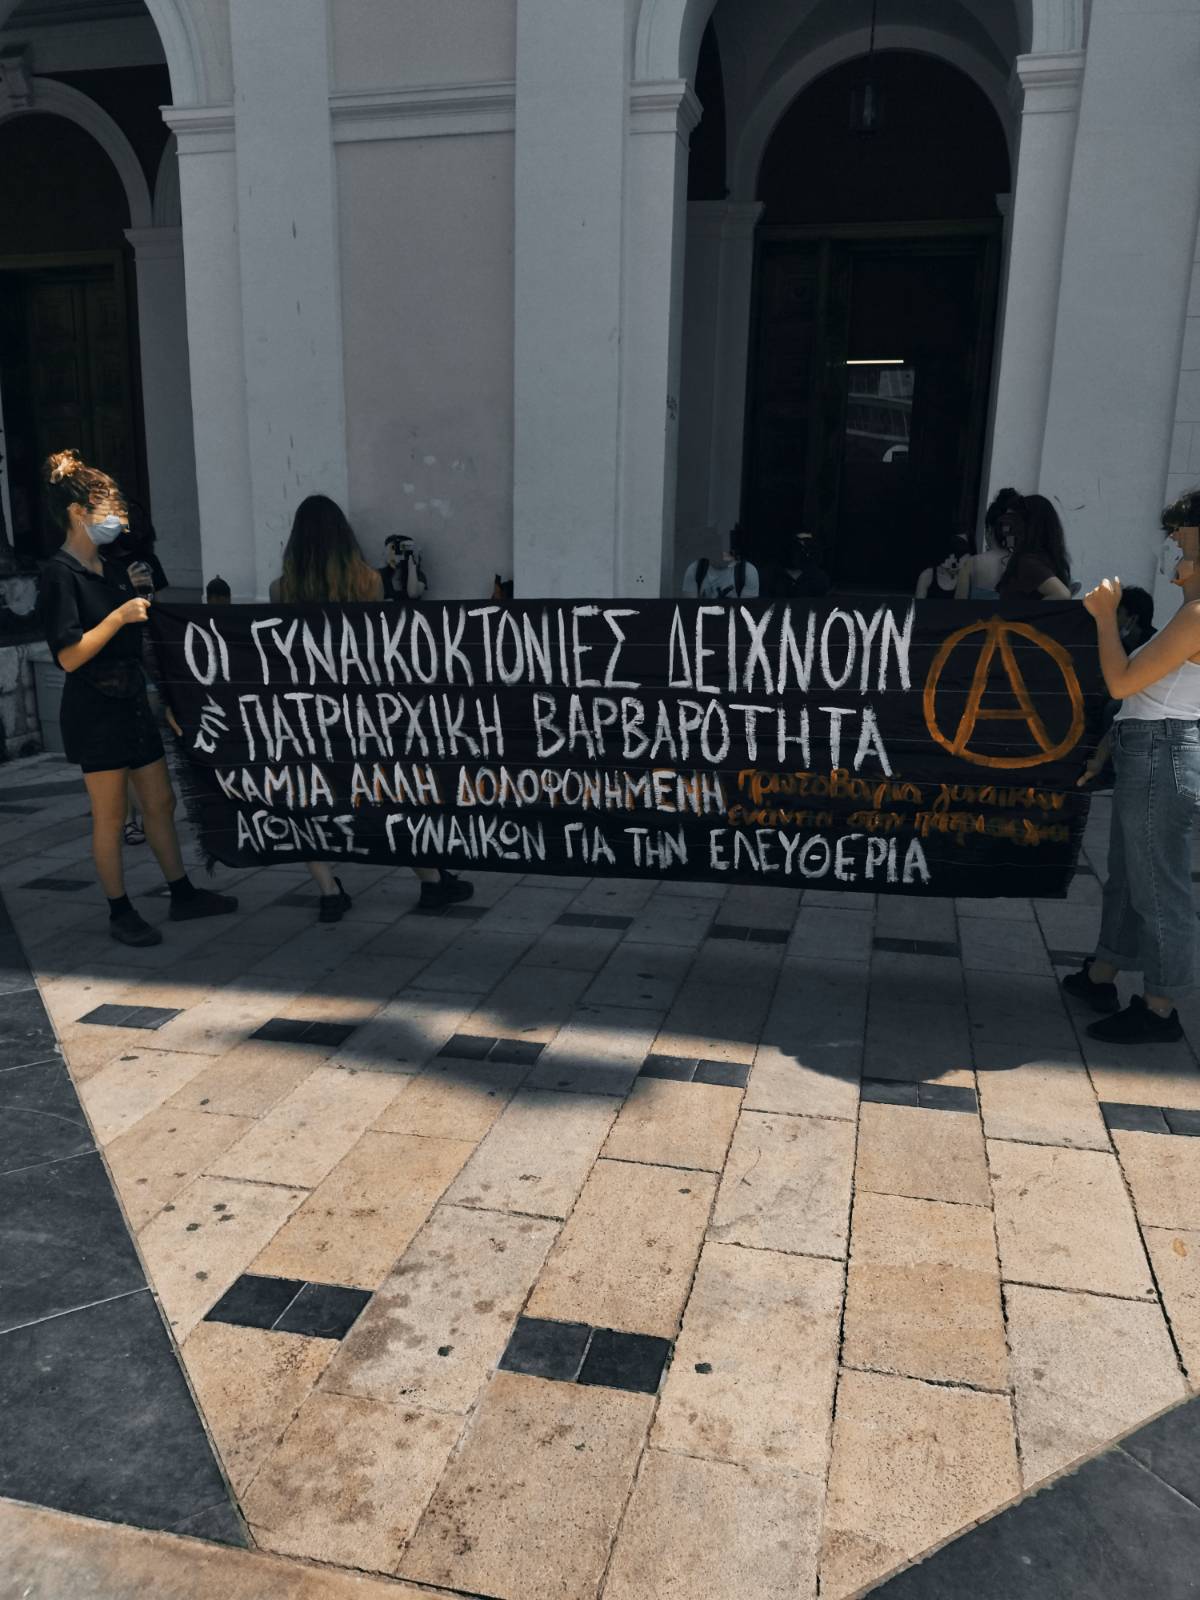 ΟΙ ΓΥΝΑΙΚΟΚΤΟΝΙΕΣ ΔΕΙΧΝΟΥΝ
ΤΗΝ ΠΑΤΡΙΑΡΧΙΚΗ ΒΑΡΒΑΡΟΤΗΤΑ
ΚΑΜΙΑ ΑΛΛΗ ΔΟΛΟΦΟΝΗΜΕΝΗ
ΑΓΩΝΕΣ ΓΥΝΑΙΚΩΝ ΓΙΑ ΤΗΝ ΕΛΕΥΘΕΡΙΑ
Πρωτοβουλία γυναικών
ενάντια στην πατριαρχία